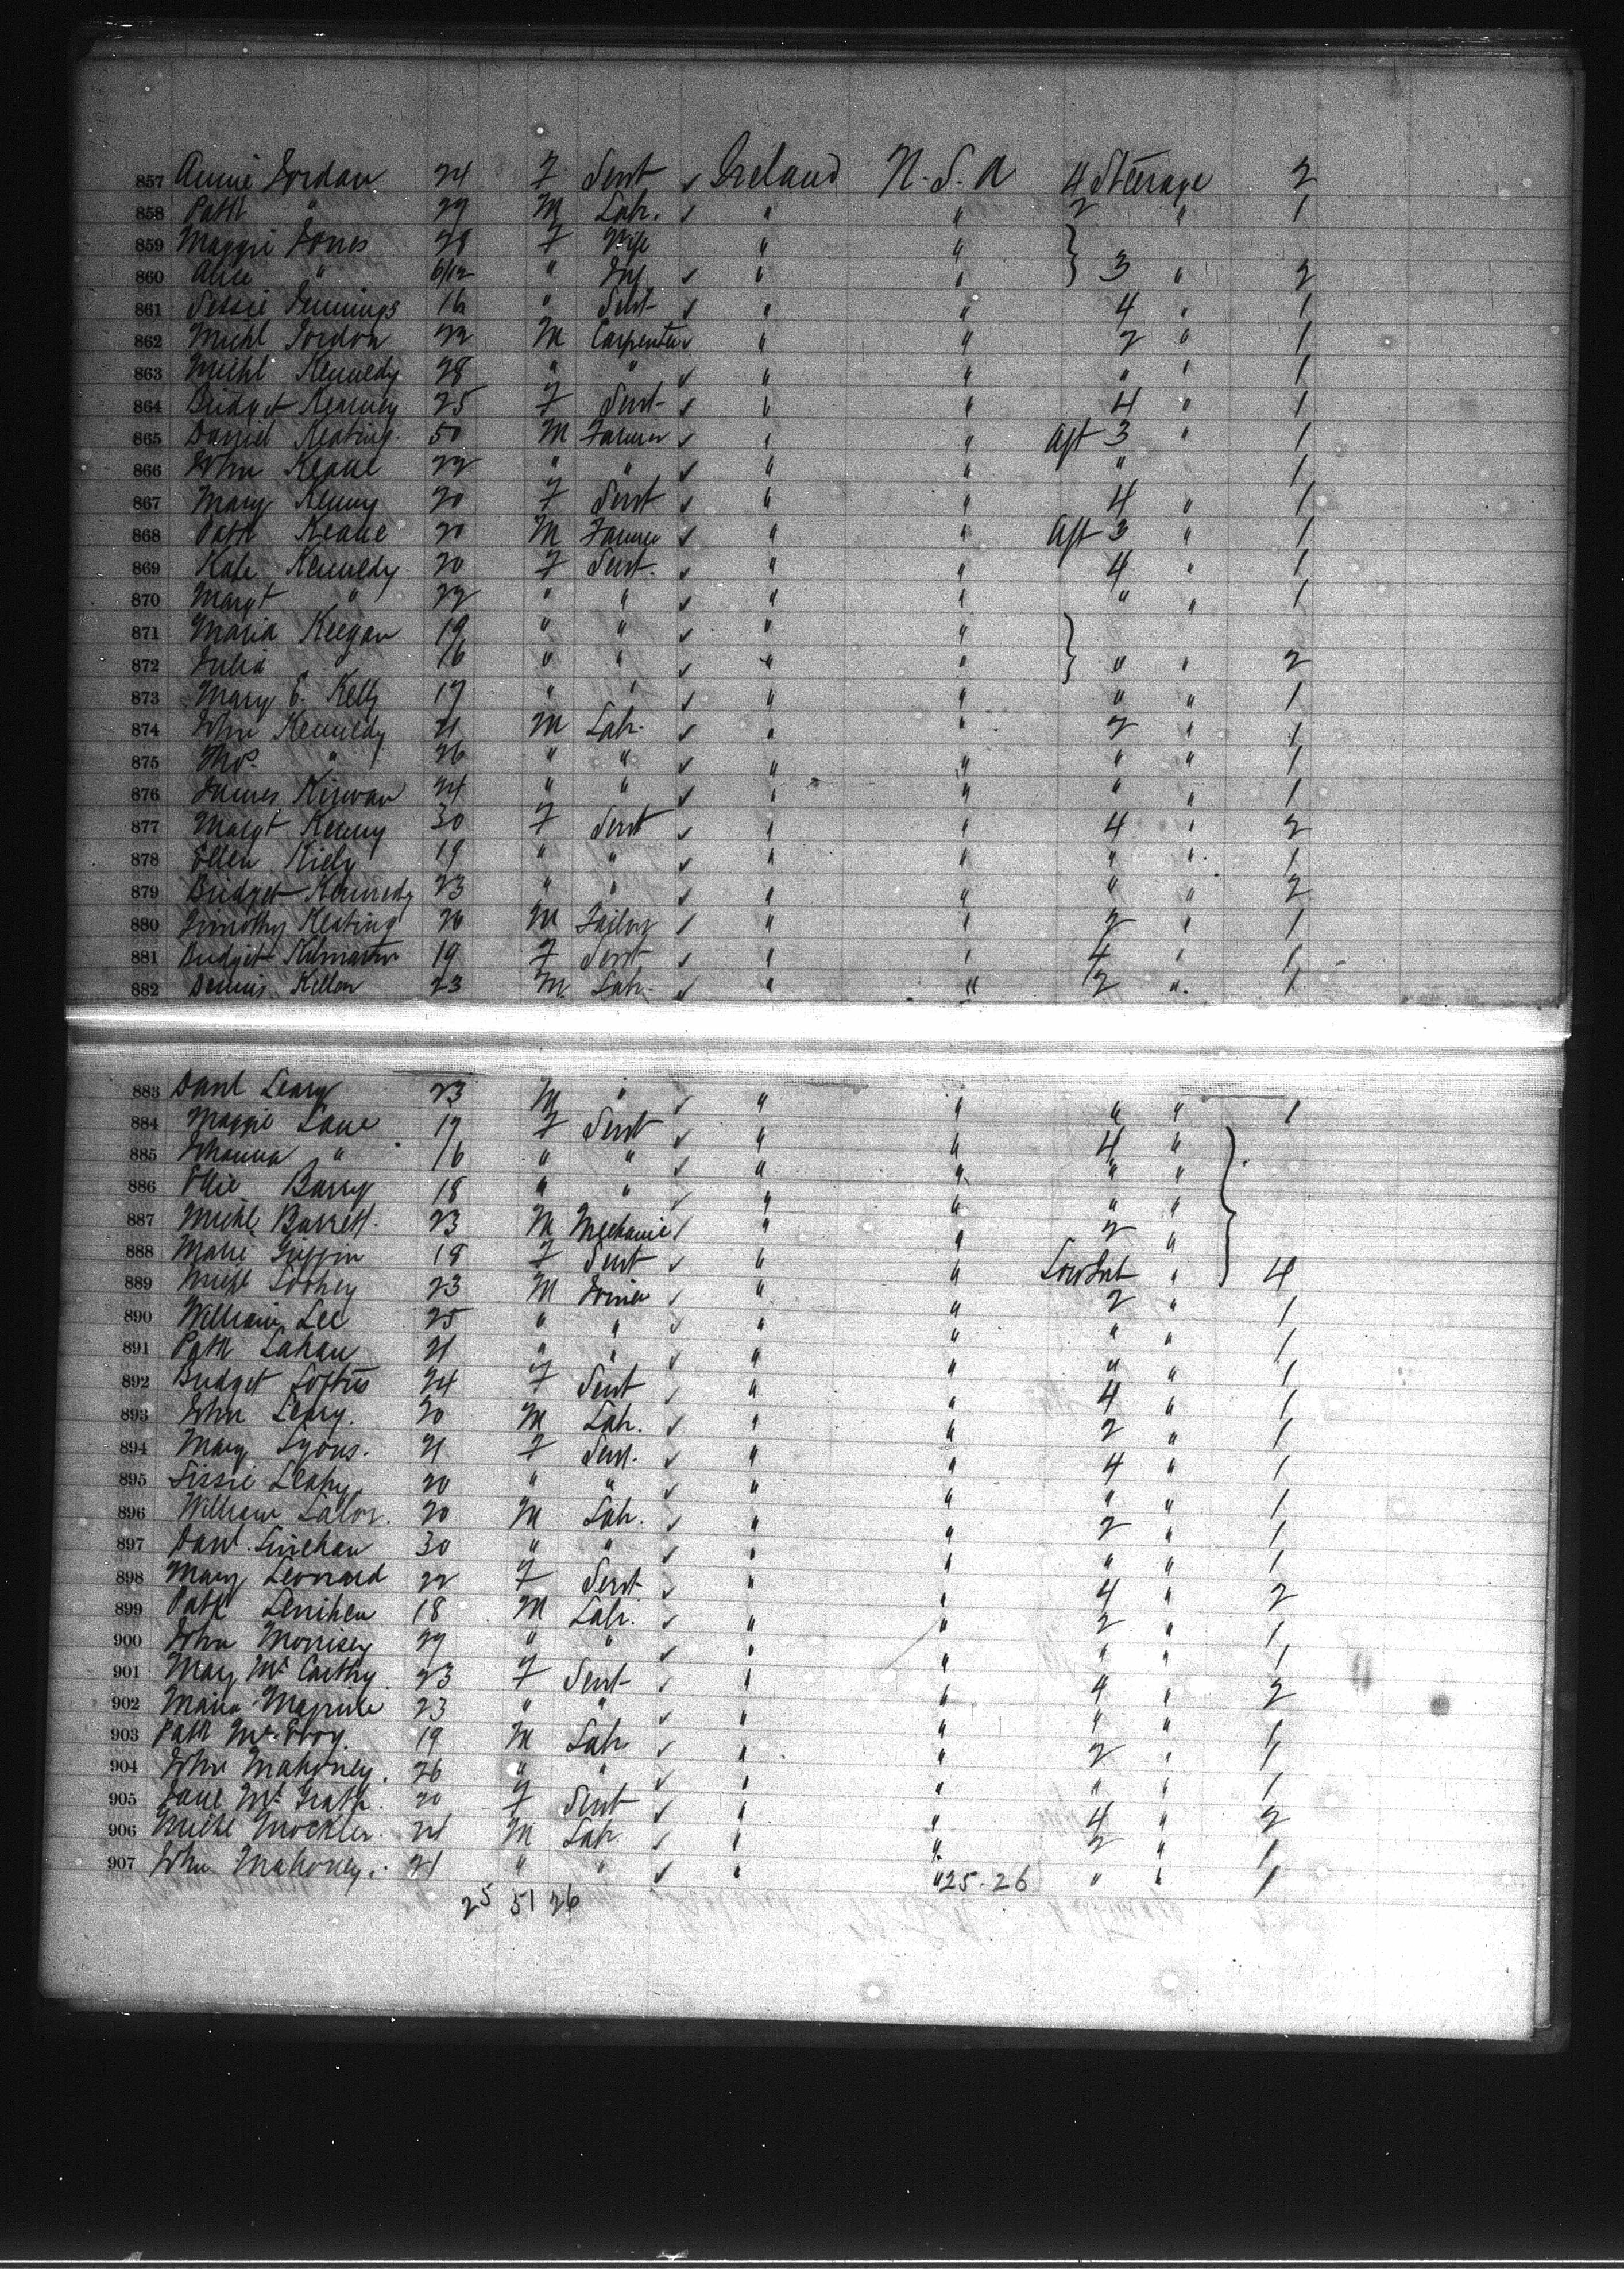 857 Annie Jordan 24 F Servt ✓ Ireland U.S.A 4 Steerage 2
858 Patk " 27 M Lab. ✓ " " 2 " 1
859 Maggie Jones 28 F Wife " "
860 Alice " 6/12 " Inf ✓ " " } 3 " 2
861 Jessie Jennings 16 " Servt ✓ " " 4 " 1
862 Michl Jordon 22 M Carpenter ✓ " " 2 " 1
863 Michl Kennedy 28 " " ✓ " " " " 1
864 Bridget Kearney 25 F Servt ✓ " " 4 " 1
865 Daniel Keating 50 M Farmer ✓ " " Aft 3 " 1
866 John Keane 22 " " ✓ " " " 1
867 Mary Kenny 20 F Servt ✓ " " 4 " 1
868 Patk Keane 20 M Farmer ✓ " " Aft 3 " 1
869 Kate Kennedy 20 F Servt. ✓ " " 4 " 1
870 Margt " 22 " " ✓ " " " " 1
871 Maria Keegan 19 " " ✓ " "
872 Julia " 16 " " ✓ " " } " " 2
873 Mary E. Kelly 17 " " ✓ " " " " 1
874 John Kennedy 21 M Lab. ✓ " " 2 " 1
875 Thos. " 26 " " ✓ " " " " 1
876 James Kirwan 24 " " ✓ " " " " 1
877 Margt Kenny 30 F Servt ✓ " " 4 " 2
878 Ellen Kiely 19 " " ✓ " " " " 1
879 Bridget Kennedy 23 " " ✓ " " " " 2
880 Timothy Keating 26 M Tailor ✓ " " 2 " 1
881 Bridget Kilmartin 19 F Servt ✓ " " 4 " 1
882 Dennis Killen 23 M Lab. ✓ " " 2 " 1
883 Danl Leary 23 M " ✓ " " " " 1
884 Maggie Lane 17 F Servt ✓ " " 4 "
885 Johanna " 16 " " ✓ " " " "
886 Ellie Barry 18 " " ✓ " " " "
887 Michl Barrett 23 M Mechanic ✓ " " 2 "
888 Marie Griffin 18 F Servt ✓ " " " } 4
889 Michl Looney 23 M Joiner ✓ " " 2 " 1
890 William Lee 25 " " ✓ " " " " 1
891 Patk Lahan 21 " " ✓ " " " " 1
892 Bridget Loftus 24 F Servt ✓ " " 4 " 1
893 John Leary. 20 M Lab. ✓ " " 2 " 1
894 Mary Lyons. 21 F Servt. ✓ " " 4 " 1
895 Lissie Leahy 20 " " ✓ " " " " 1
896 William Lalor. 20 M Lab. ✓ " " 2 " 1
897 Danl. Linehan 30 " " ✓ " " " " 1
898 Mary Leonard 22 F Servt ✓ " " 4 " 2
899 Patk Lenihen 18 M Lab. ✓ " " 2 " 1
900 John Morrisey 27 " " ✓ " " " " 1
901 Mary McCarthy 23 F Servt ✓ " " 4 " 2
902 Maria Maguire 23 " " ✓ " " " " 1
903 Patk McEvoy. 19 M Lab ✓ " " 2 " 1
904 John Mahoney. 26 " " ✓ " " " " 1
905 Jane McGrath. 20 F Servt ✓ " " 4 " 2
906 Michl Mockler. 24 M Lab ✓ " " 2 " 1
907 John Mahoney. 21 " " ✓ " " 25-26 " " 1
25 51 26